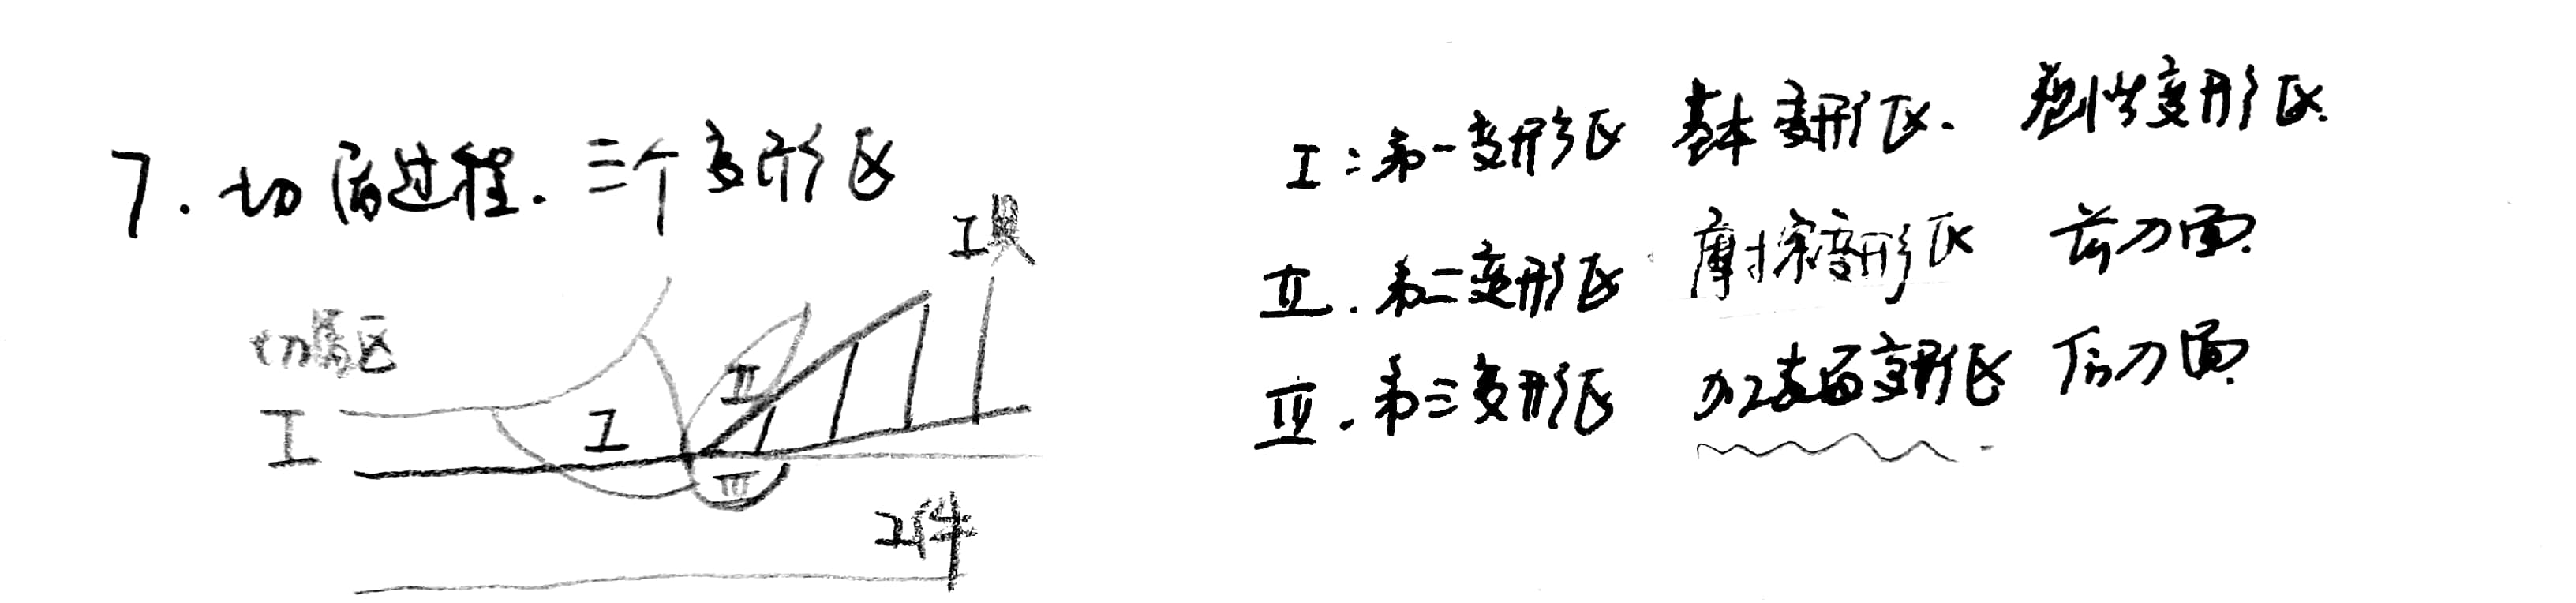 7. 切屑过程. 三个变形区
工具
切屑区
I
I
II
III
工件
I：第一变形区 基本变形区. 塑性变形区.
II. 第二变形区 摩擦变形区 前刀面.
III. 第三变形区 加工表面变形区 后刀面.